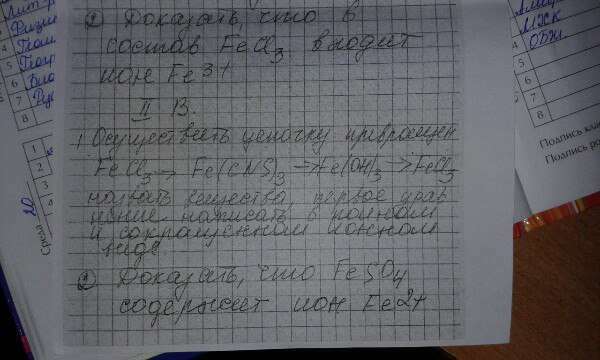 ② Доказать, что в
состав FeCl3 входит
ион Fe3+
II В
1 Осуществить цепочку превращен
FeCl3 → Fe(CNS)3 → Fe(OH)3 → FeCl3
назвать вещества, первое урав
нение написать в полном
и сокращенном ионном
виде
② Доказать, что FeSO4
содержит ион Fe2+
1
2
3
4
Среда 20
4
5
6
7
8
МХК
ОБЖ
4
5
6
7
8
Подпись кла
Подпись ро